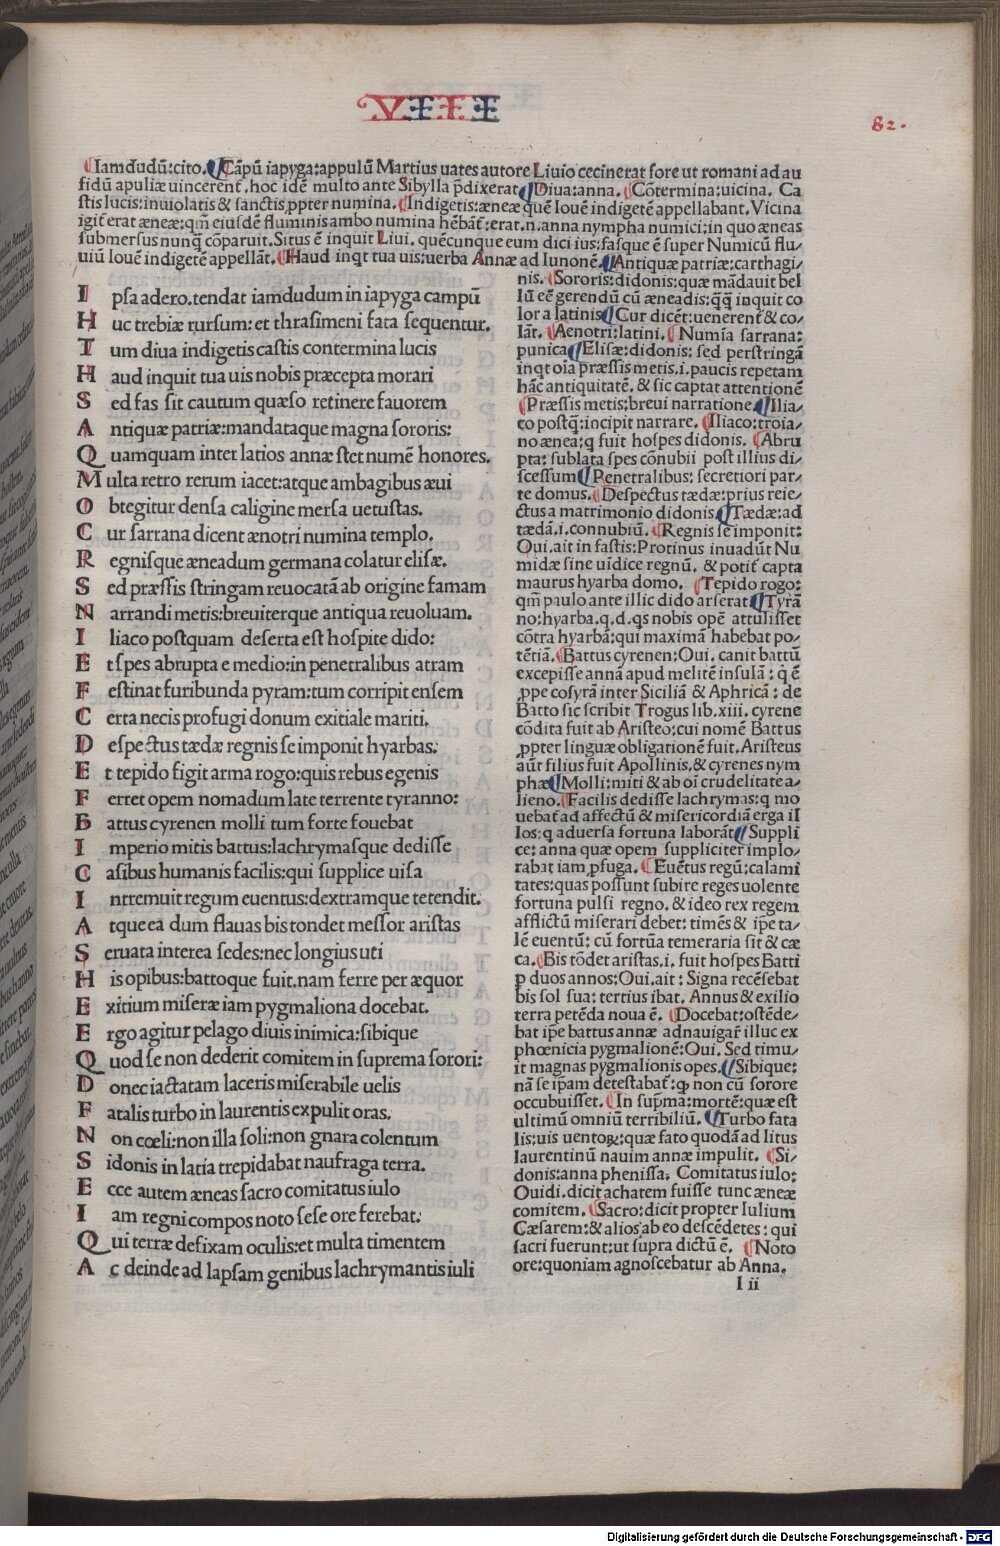 VIII
82.
Iamdudū:cito. Cāpū iapyga:appulū Martius uates autore Liuio cecinerat fore ut romani ad au⸗
fidū apuliæ uincerent. hoc idē multo ante Sibylla p̄dixerat Diua:anna. Cōtermina:uicina. Ca
ſtis lucis:inuiolatis & ſanctis ꝓpter numina. Indigetis:æneæ quē Iouē indigetē appellabant. Vicina
igit̄ erat æneæ:qm̄ eiuſdē fluminis ambo numina hēbāt:erat.n.anna nympha numici:in quo æneas
ſubmerſus nunq̄ cōparuit. Situs ē inquit Liui. quēcunque eum dici ius:faſque ē ſuper Numicū flu⸗
uiū Iouē indigetē appellāt. Haud inqt tua uis:uerba Annæ ad Iunonē. Antiquæ patriæ:carthagi⸗
I pſa adero.tendat iamdudum in iapyga campū
H uc trebiæ rurſum:et thraſimeni fata ſequentur.
T um diua indigetis caſtis contermina lucis
H aud inquit tua uis nobis præcepta morari
S ed fas ſit cautum quæſo retinere fauorem
A ntiquæ patriæ:mandataque magna ſororis:
Q uamquam inter latios annæ ſtet numē honores.
M ulta retro rerum iacet:atque ambagibus æui
O btegitur denſa caligine merſa uetuſtas.
C ur ſarrana dicent ænotri numina templo.
R egniſque æneadum germana colatur eliſæ.
S ed præſſis ſtringam reuocatā ab origine famam
N arrandi metis:breuiterque antiqua reuoluam.
I liaco poſtquam deſerta eſt hoſpite dido:
E t ſpes abrupta e medio:in penetralibus atram
F eſtinat furibunda pyram:tum corripit enſem
C erta necis profugi donum exitiale mariti.
D eſpectus tædæ regnis ſe imponit hyarbas:
E t tepido figit arma rogo:quis rebus egenis
F erret opem nomadum late terrente tyranno:
B attus cyrenen molli tum forte fouebat
I mperio mitis battus:lachrymaſque dediſſe
C aſibus humanis facilis:qui ſupplice uiſa
I ntremuit regum euentus:dextramque tetendit.
A tque ea dum flauas bis tondet meſſor ariſtas
S eruata interea ſedes:nec longius uti
H is opibus:battoque fuit.nam ferre per æquor
E xitium miſeræ iam pygmaliona docebat.
E rgo agitur pelago diuis inimica:ſibique
Q uod ſe non dederit comitem in ſuprema ſorori:
D onec iactatam laceris miſerabile uelis
F atalis turbo in laurentis expulit oras.
N on cœli:non illa ſoli:non gnara colentum
S idonis in latia trepidabat naufraga terra.
E cce autem æneas ſacro comitatus iulo
I am regni compos noto ſeſe ore ferebat:
Q ui terræ defixam oculis:et multa timentem
A c deinde ad lapſam genibus lachrymantis iuli
nis. Sororis:didonis:quæ mādauit bel
lū eē gerendū cū æneadis:q̄q̄ inquit co
lor a latinis Cur dicēt:uenerent̄ & co⸗
lāt. Aenotri:latini. Numīa ſarrana:
punica Eliſæ:didonis: ſed perſtringā
inqt oīa præſſis metis.i.paucis repetam
hāc antiquitatē. & ſic captat attentionē
Præſſis metis:breui narratione. Ilia⸗
co poſtq̄:incipit narrare. Iliaco:troia⸗
no ænea:q fuit hoſpes didonis. Abru
pta: ſublata ſpes cōnubii poſt illius di⸗
ſceſſum Penetralibus: ſecretiori par⸗
te domus. Deſpectus tædæ:prius reie⸗
ctus a matrimonio didonis. Tædæ:ad
tædā.i.connubiū. Regnis ſe imponit:
Oui.ait in faſtis:Protinus inuadūt Nu
midæ ſine uīdice regnū. & potit̄ capta
maurus hyarba domo. Tepido rogo:
qm̄ paulo ante illic dido arſerat Tyrā
no:hyarba.q.d.qs nobis opē attuliſſet
cōtra hyarbā:qui maximā habebat po⸗
tētiā. Battus cyrenen:Oui. canit battū
excepiſſe annā apud melitē inſulā: q̄ ē
ꝓpe coſyrā inter Siciliā & Aphricā: de
Batto ſic ſcribit Trogus lib.xiii. cyrene
cōdita fuit ab Ariſteo:cui nomē Battus
ꝓpter linguæ obligationē fuit. Ariſteus
aūt filius fuit Apollinis,& cyrenes nym
phæ Molli:miti & ab oī crudelitate a⸗
lieno. Facilis dediſſe lachrymas:q mo
uebat̄ ad affectū & miſericordiā erga il
los:q aduerſa fortuna laborāt Suppli
ce: anna quæ opem ſuppliciter implo⸗
rabat iam ꝓfuga. Euētus regū:calami
tates:quas poſſunt ſubire reges uolente
fortuna pulſi regno. & ideo rex regem
afflictū miſerari debet: timēs & ip̄e ta⸗
lē euentū: cū fortūa temeraria ſit & cæ
ca. Bis tōdet ariſtas.i. fuit hoſpes Batti
ꝑ duos annos:Oui.ait: Signa recēſebat
bis ſol ſua: tertius ibat. Annus & exilio
terra petēda noua ē. Docebat:oſtēde⸗
bat ip̄e battus annæ adnauigar̄ illuc ex
phœnicia pygmalionē:Oui. Sed timu⸗
it magnas pygmalionis opes. Sibique:
nā ſe ip̄am deteſtabat̄: q̢ non cū ſorore
occubuiſſet. In ſup̄ma:mortē:quæ eſt
ultimū omniū terribiliū. Turbo fata
lis:uis uentoꝝ:quæ fato quodā ad litus
laurentinū nauim annæ impulit. Si⸗
donis:anna pheniſſa. Comitatus iulo:
Ouidi.dicit achatem fuiſſe tunc æneæ
comitem. Sacro:dicit propter Iulium
Cæſarem:& alios ab eo deſcēdetes: qui
ſacri fuerunt:ut ſupra dictū ē. Noto
ore:quoniam agnoſcebatur ab Anna.
l ii
Digitalisierung gefördert durch die Deutsche Forschungsgemeinschaft - DFG